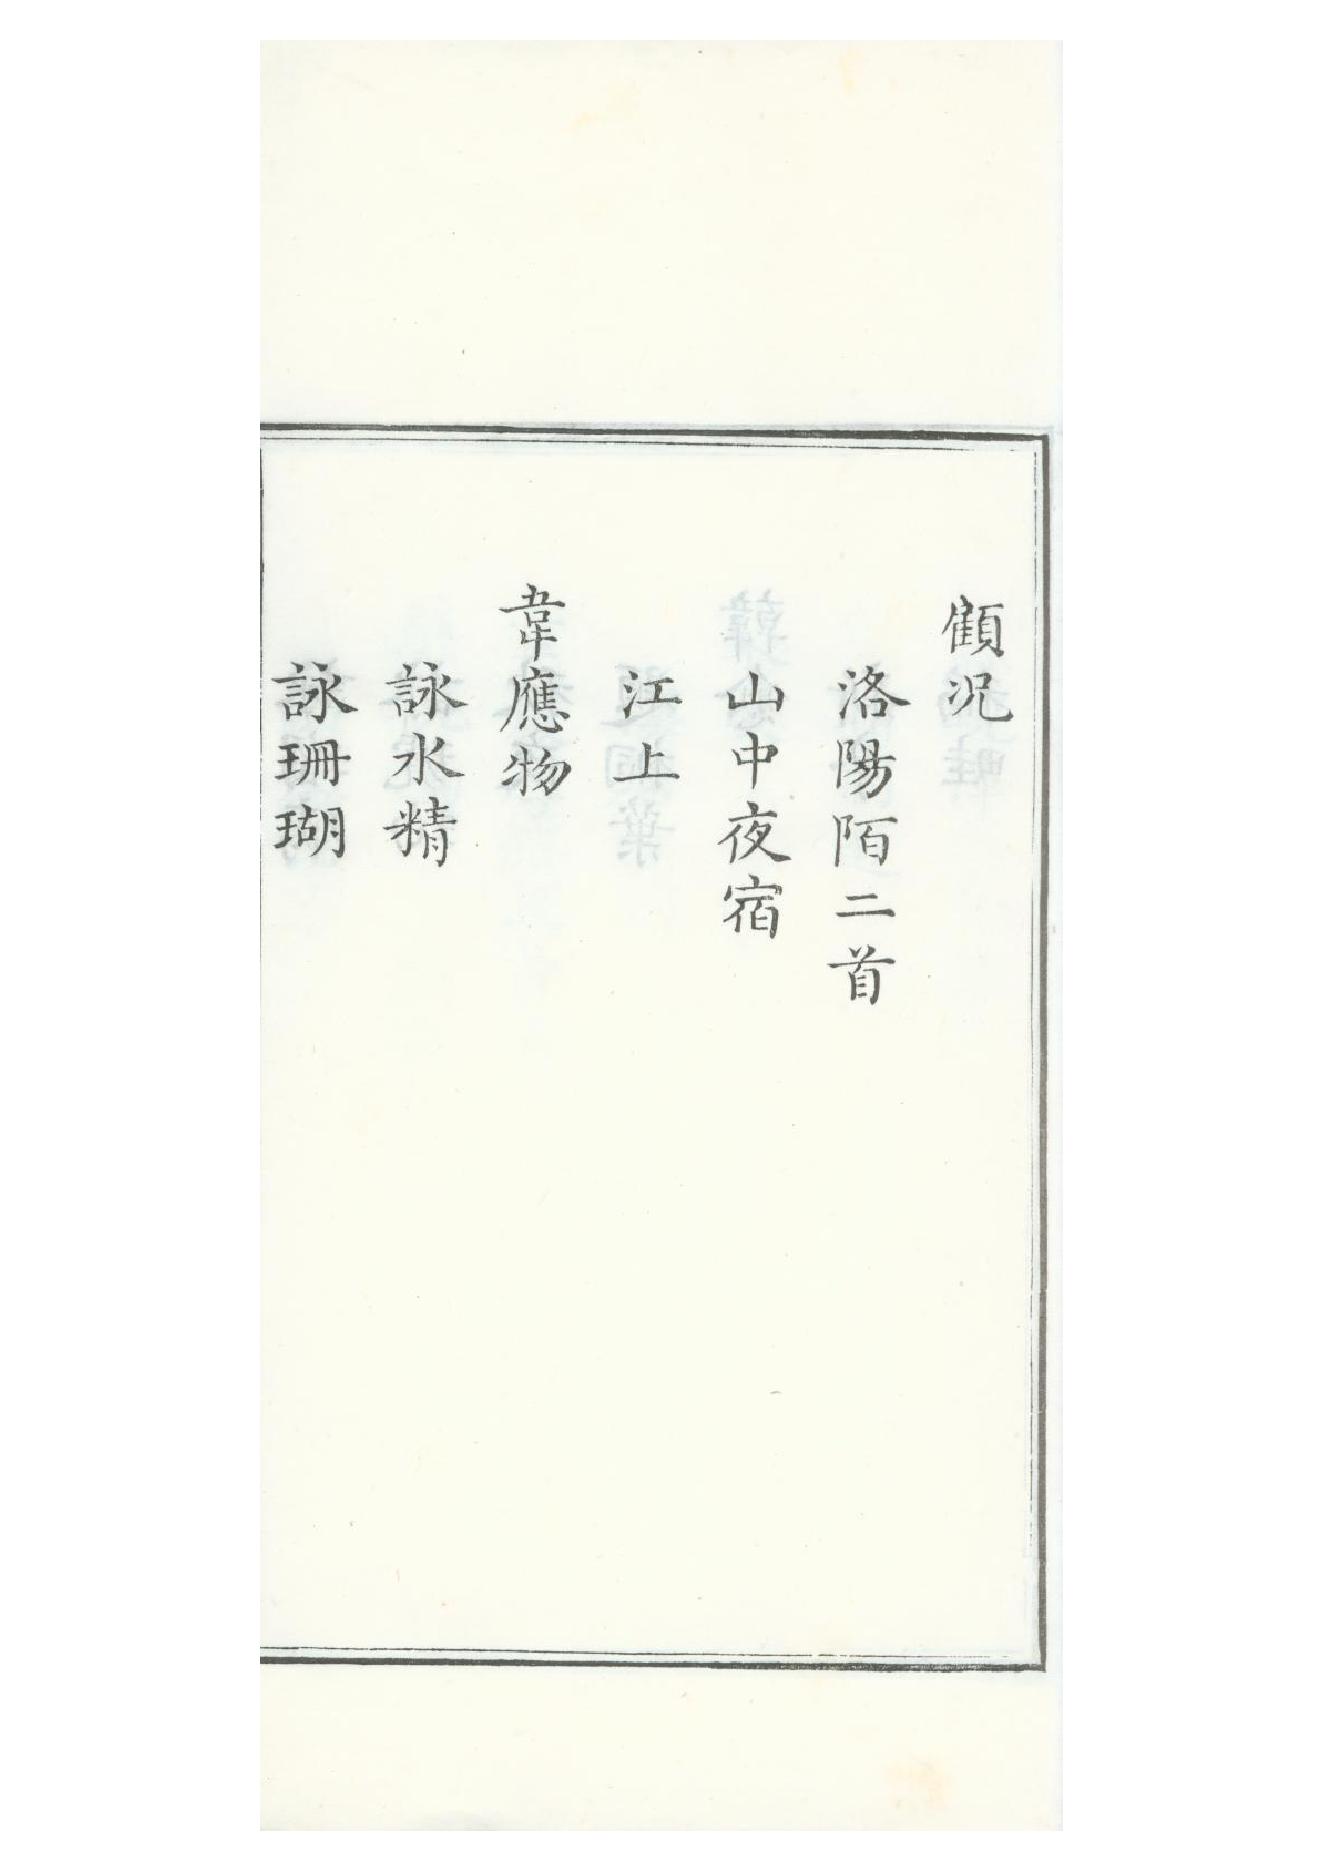 顧况
洛陽陌二首
山中夜宿
江上
韋應物
詠水精
詠珊瑚